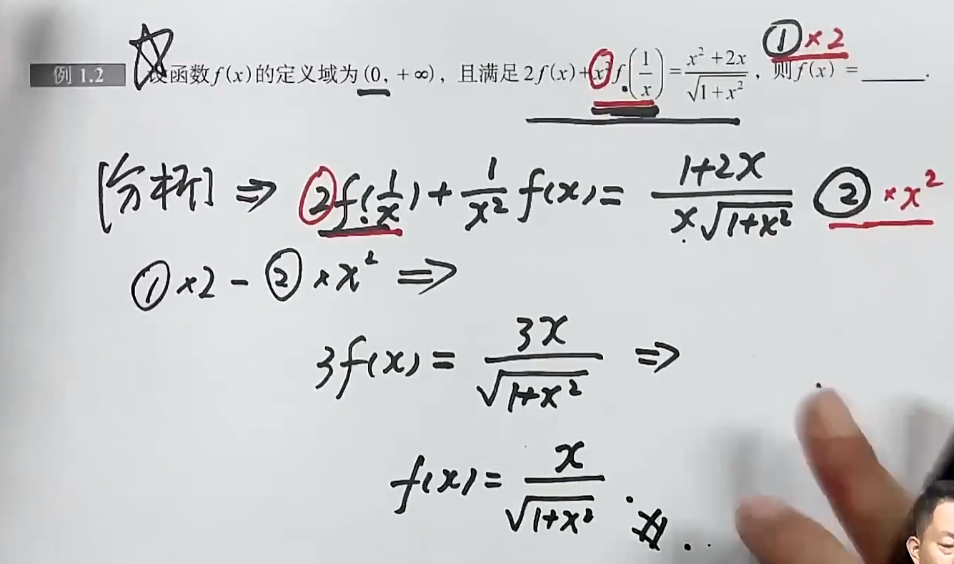 ① × 2
例 1.2 设函数 f(x) 的定义域为 (0, +∞), 且满足 2f(x)+x²f(1/x)=(x²+2x)/√(1+x²), 则 f(x) = ______.
[分析] ⇒ 2f(1/x)+1/x² f(x)=(1+2x)/(x√(1+x²)) ② × x²
① × 2 - ② × x² ⇒
3f(x) = 3x/√(1+x²) ⇒
f(x) = x/√(1+x²) .